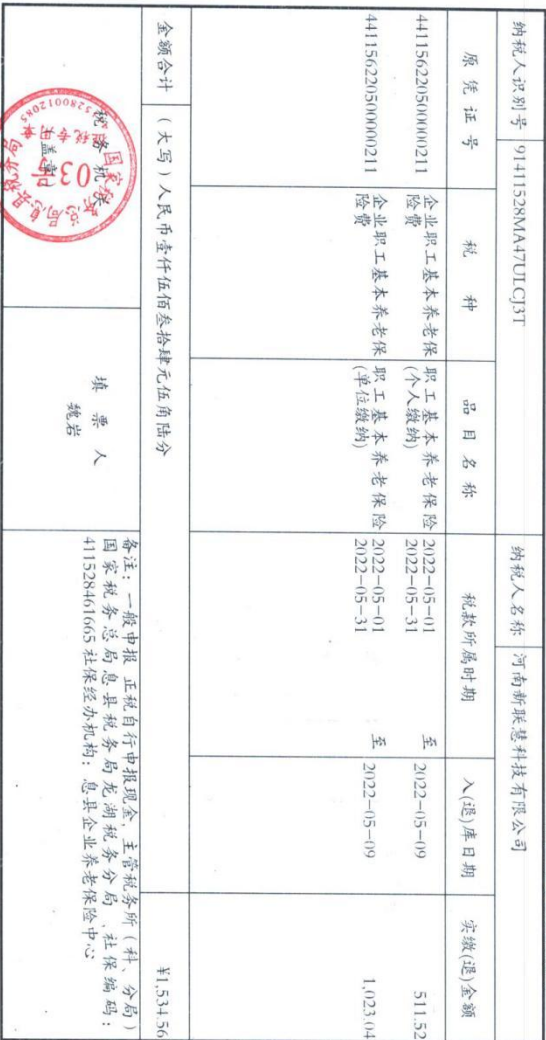 纳税人识别号 91411528MA47ULCJ3T 纳税人名称 河南新联慧科技有限公司
原凭证号 税种 品目名称 税款所属时期 入(退)库日期 实缴(退)金额
441156220500000211 企业职工基本养老保 职工基本养老保险 2022-05-01 至 2022-05-09 511.52
险费 (个人缴纳) 2022-05-31
441156220500000211 企业职工基本养老保 职工基本养老保险 2022-05-01 至 2022-05-09 1,023.04
险费 (单位缴纳) 2022-05-31
金额合计 (大写)人民币壹仟伍佰叁拾肆元伍角陆分 ¥1,534.56
税务机关
(盖章)
填票人
魏岩
备注:一般申报 正税自行申报现金, 主管税务所(科、分局):
国家税务总局息县税务局龙湖税务分局, 社保编码:
411528461665 社保经办机构:息县企业养老保险中心
国家税务总局息县税务局
03
征税专用章
4115280012085